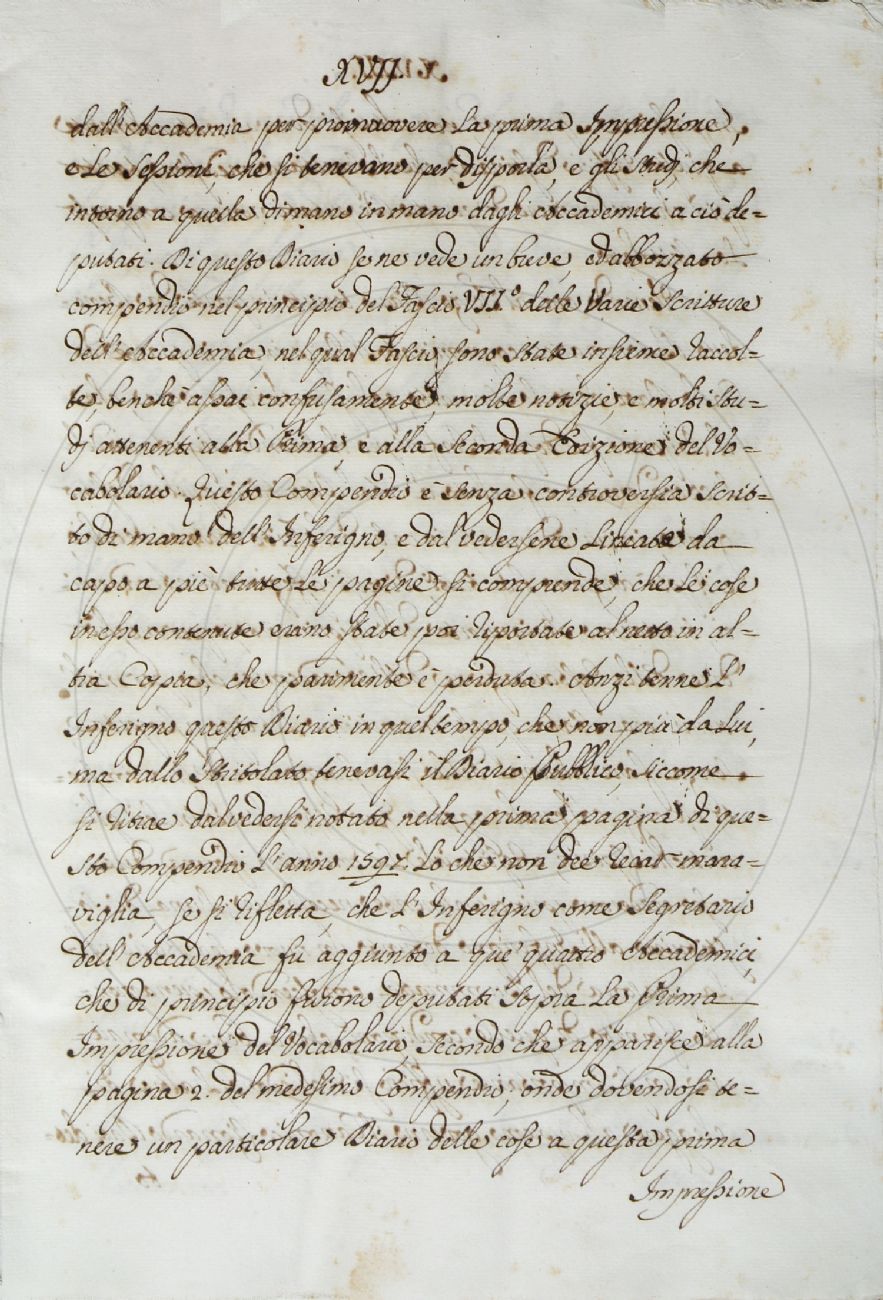 XVII.
dall'Accademia per promuovere la prima Impressione,
e le Sessioni, che si tenevano per disporla, e gli Studj, che
intorno a quella di mano in mano dagli Accademici a ciò de=
putati. Di questo Diario se ne vede un breve, ed abbozzato
compendio nel principio del Fascio VII.º delle Varie Scritture
dell'Accademia, nel qual Fascio sono state insieme raccol=
te, benchè assai confusamente, molte notizie, e molti Stu=
dj attenenti alla Prima, e alla Seconda Edizione del Vo=
cabolario. Questo Compendio è senza controversia scrit=
to di mano dell'Inferigno, e dal vedersene lineate da
capo a piè tutte le pagine si comprende, che le cose
in esso contenute erano state poi riportate al netto in al=
tra Copia, che parimente è perduta. Anzi tenne l'
Inferigno questo Diario in quel tempo, che non più da Lui,
ma dallo Stritolato tenevasi il Diario Pubblico, siccome
si ritrae dal vedersi notato nella prima pagina di que=
sto Compendio l'anno 1597. Lo che non dee recar mara=
viglia, se si rifletta, che l'Inferigno come Segretario
dell'Accademia fù aggiunto a que' quattro Accademici,
che di principio furono deputati sopra la Prima
Impressione del Vocabolario, secondo che apparisce alla
pagina 2. del medesimo Compendio; onde dovendosi te=
nere un particolare Diario delle cose a questa prima
Impressione